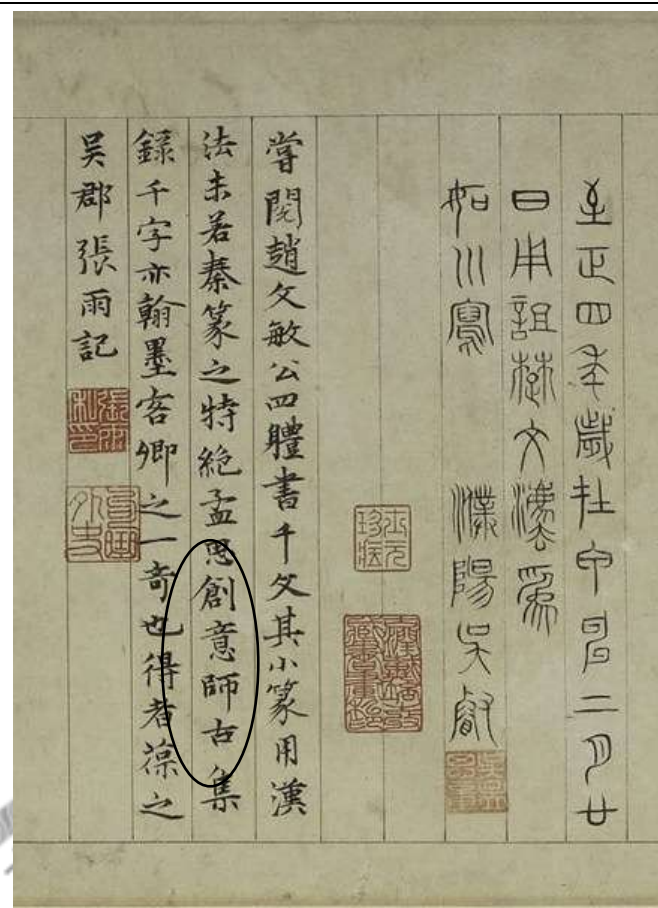 至正四年歲在甲申二月廿
日用詛楚文法為
如川寫 濮陽吳叡
嘗閱趙文敏公四體書千文其小篆用漢
法未若秦篆之特絕孟思創意師古集
錄千字亦翰墨客卿之一奇也得者葆之
吳郡張雨記
張雨私印
句曲外史